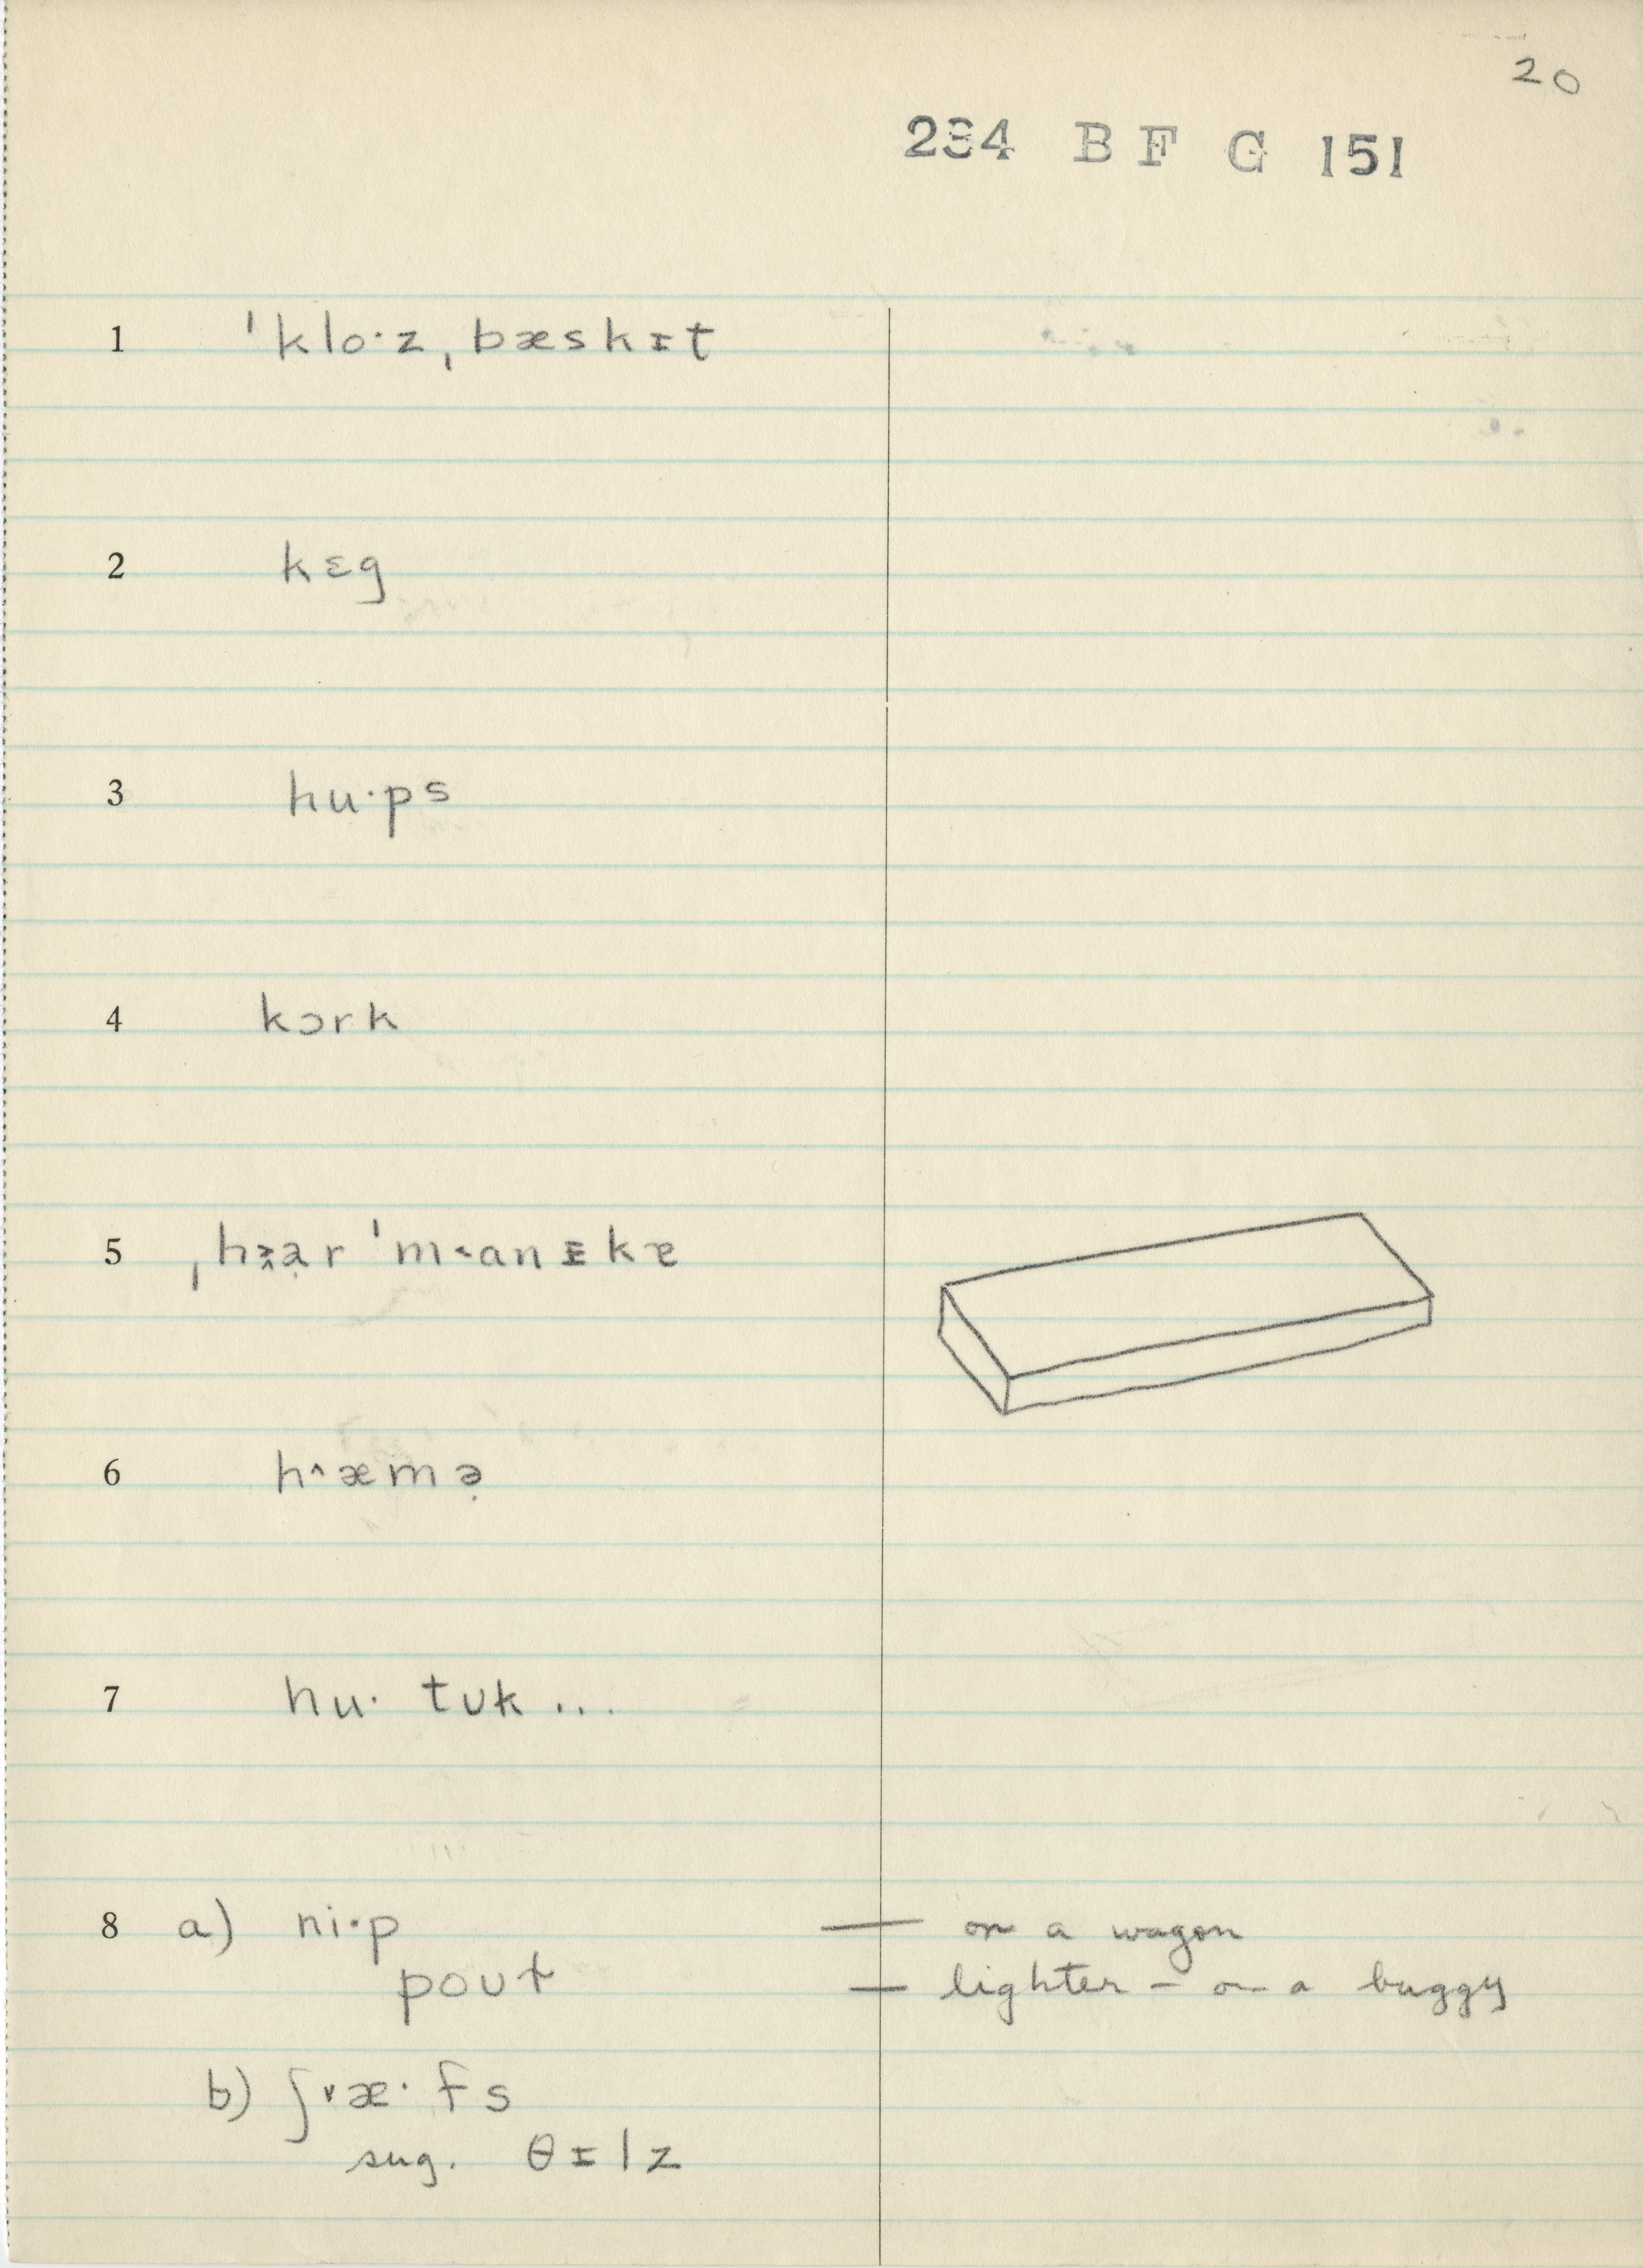 20
234 B F G 151
1 ˈkloˑz ˌbæskɪt
2 kɛg
3 huˑps
4 kɔrk
6 h˄æmə̣
7 huˑ tʊk ...
8 a) niˑp — on a wagon
poʊɫ — lighter – on a buggy
b) ʃ˅æˑfs
sug. θɪlz